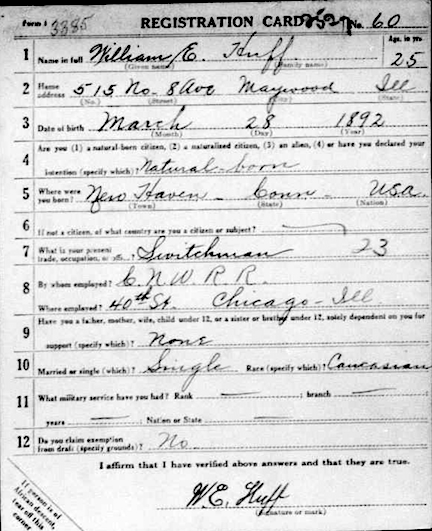 Form 1 3385 REGISTRATION CARD No. 60
1 Name in full William E. Huff. Age, in yrs. 25
(Given name) (Family name)
2 Home address 515 No. 8 Ave Maywood Ill
(No.) (Street) (City) (State)
3 Date of birth March 28 1892
(Month) (Day) (Year)
4 Are you (1) a natural-born citizen, (2) a naturalized citizen, (3) an alien, (4) or have you declared your
intention (specify which)? Natural-born
5 Where were you born? New Haven Conn. USA
(Town) (State) (Nation)
6 If not a citizen, of what country are you a citizen or subject?
7 What is your present trade, occupation, or office? Switchman 23
8 By whom employed? C. N. W. R R.
Where employed? 40th St. Chicago - Ill
9 Have you a father, mother, wife, child under 12, or a sister or brother under 12, solely dependent on you for
support (specify which)? None
10 Married or single (which)? Single Race (specify which)? Caucasian
11 What military service have you had? Rank — ; branch —
years — ; Nation or State —
12 Do you claim exemption from draft (specify grounds)? No
I affirm that I have verified above answers and that they are true.
W.E. Huff
(Signature or mark)
If person is of
African descent,
tear off this
corner